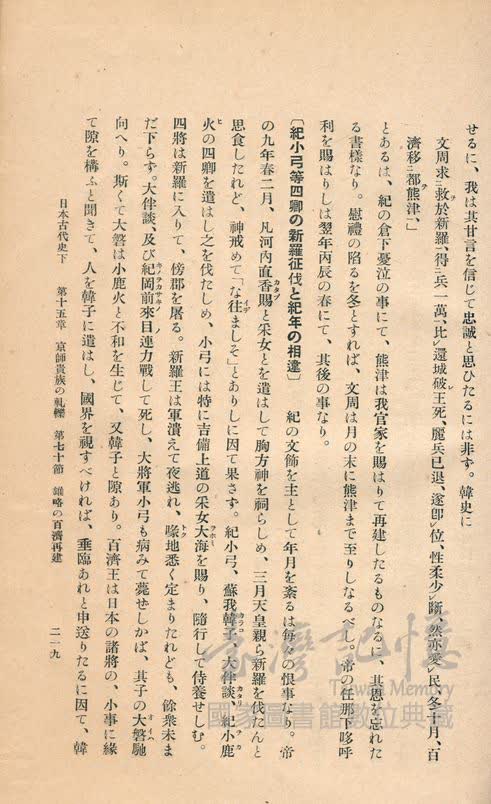 せるに、我は其甘言を信じて忠誠と思ひたるには非ず。韓史に
文周求救於新羅、得兵一萬、比還城破王死、麗兵已退、遂卽位、性柔少斷、然亦愛民、冬十月、百
濟移都熊津、」
とあるは、紀の倉下憂泣の事にて、熊津は我官家を賜はりて再建したるものなるに、其恩を忘れた
る書樣なり。慰禮の陷るを冬とすれば、文周は月の末に熊津まで至りしなるべし。帝の任那下哆呼
利を賜はりしは翌年丙辰の春にて、其後の事なり。
〔紀小弓等四卿の新羅征伐と紀年の相違〕　紀の文飾を主として年月を紊るは每々の恨事なり。帝
の九年春二月、凡河內直香賜と采女とを遣はして胸方神を祠らしめ、三月天皇親ら新羅を伐たんと
思食したれど、神戒めて「な往ましそ」とありしに因て果さず。紀小弓、蘇我韓子、大伴談、紀小鹿
火の四卿を遣はし之を伐たしめ、小弓には特に吉備上道の采女大海を賜り、隨行して侍養せしむ。
四將は新羅に入りて、傍郡を屠る。新羅王は軍潰えて夜逃れ、喙地悉く定まりたれども、餘衆未ま
だ下らず。大伴談、及び紀岡前來目連力戰して死し、大將軍小弓も病みて薨ぜしかば、其子の大磐馳
向へり。斯くて大磐は小鹿火と不和を生じて、又韓子と隙あり。百濟王は日本の諸將の、小事に緣
て隙を構ふと聞きて、人を韓子に遣はし、國界を視すべければ、垂臨あれと申送りたるに因て、韓
日本古代史下　第十五章　京師貴族の軋轢　第七十節　雄略の百濟再建
二一九
臺灣記憶
Taiwan Memory
國家圖書館數位典藏